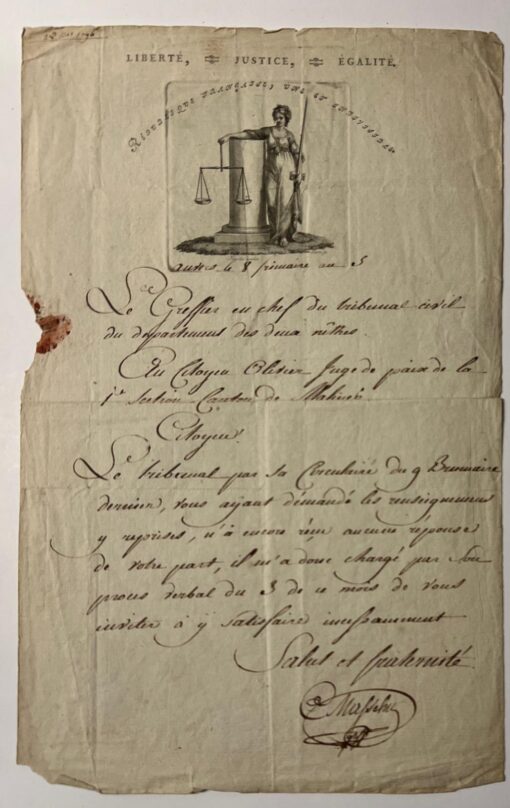 LIBERTÉ, JUSTICE, ÉGALITÉ.
RÉPUBLIQUE FRANÇAISE, UNE ET INDIVISIBLE.
anvers le 8 frimaire an 5
Le Greffier en chef du tribunal civil
du departement des deux nèthes.
Au Citoyen Olivier Juge de paix de la
1re Section Canton de Malines
Citoyen!
Le tribunal par sa Circulaire du 9 Brumaire
dernier, vous ayant démandé les renseignemens
y reprises, n'à encore réçu aucune réponse
de votre part, il m'a donc chargé par son
procès verbal du 3 de ce mois de vous
inviter à y satisfaire incessamment
Salut et fraternité.